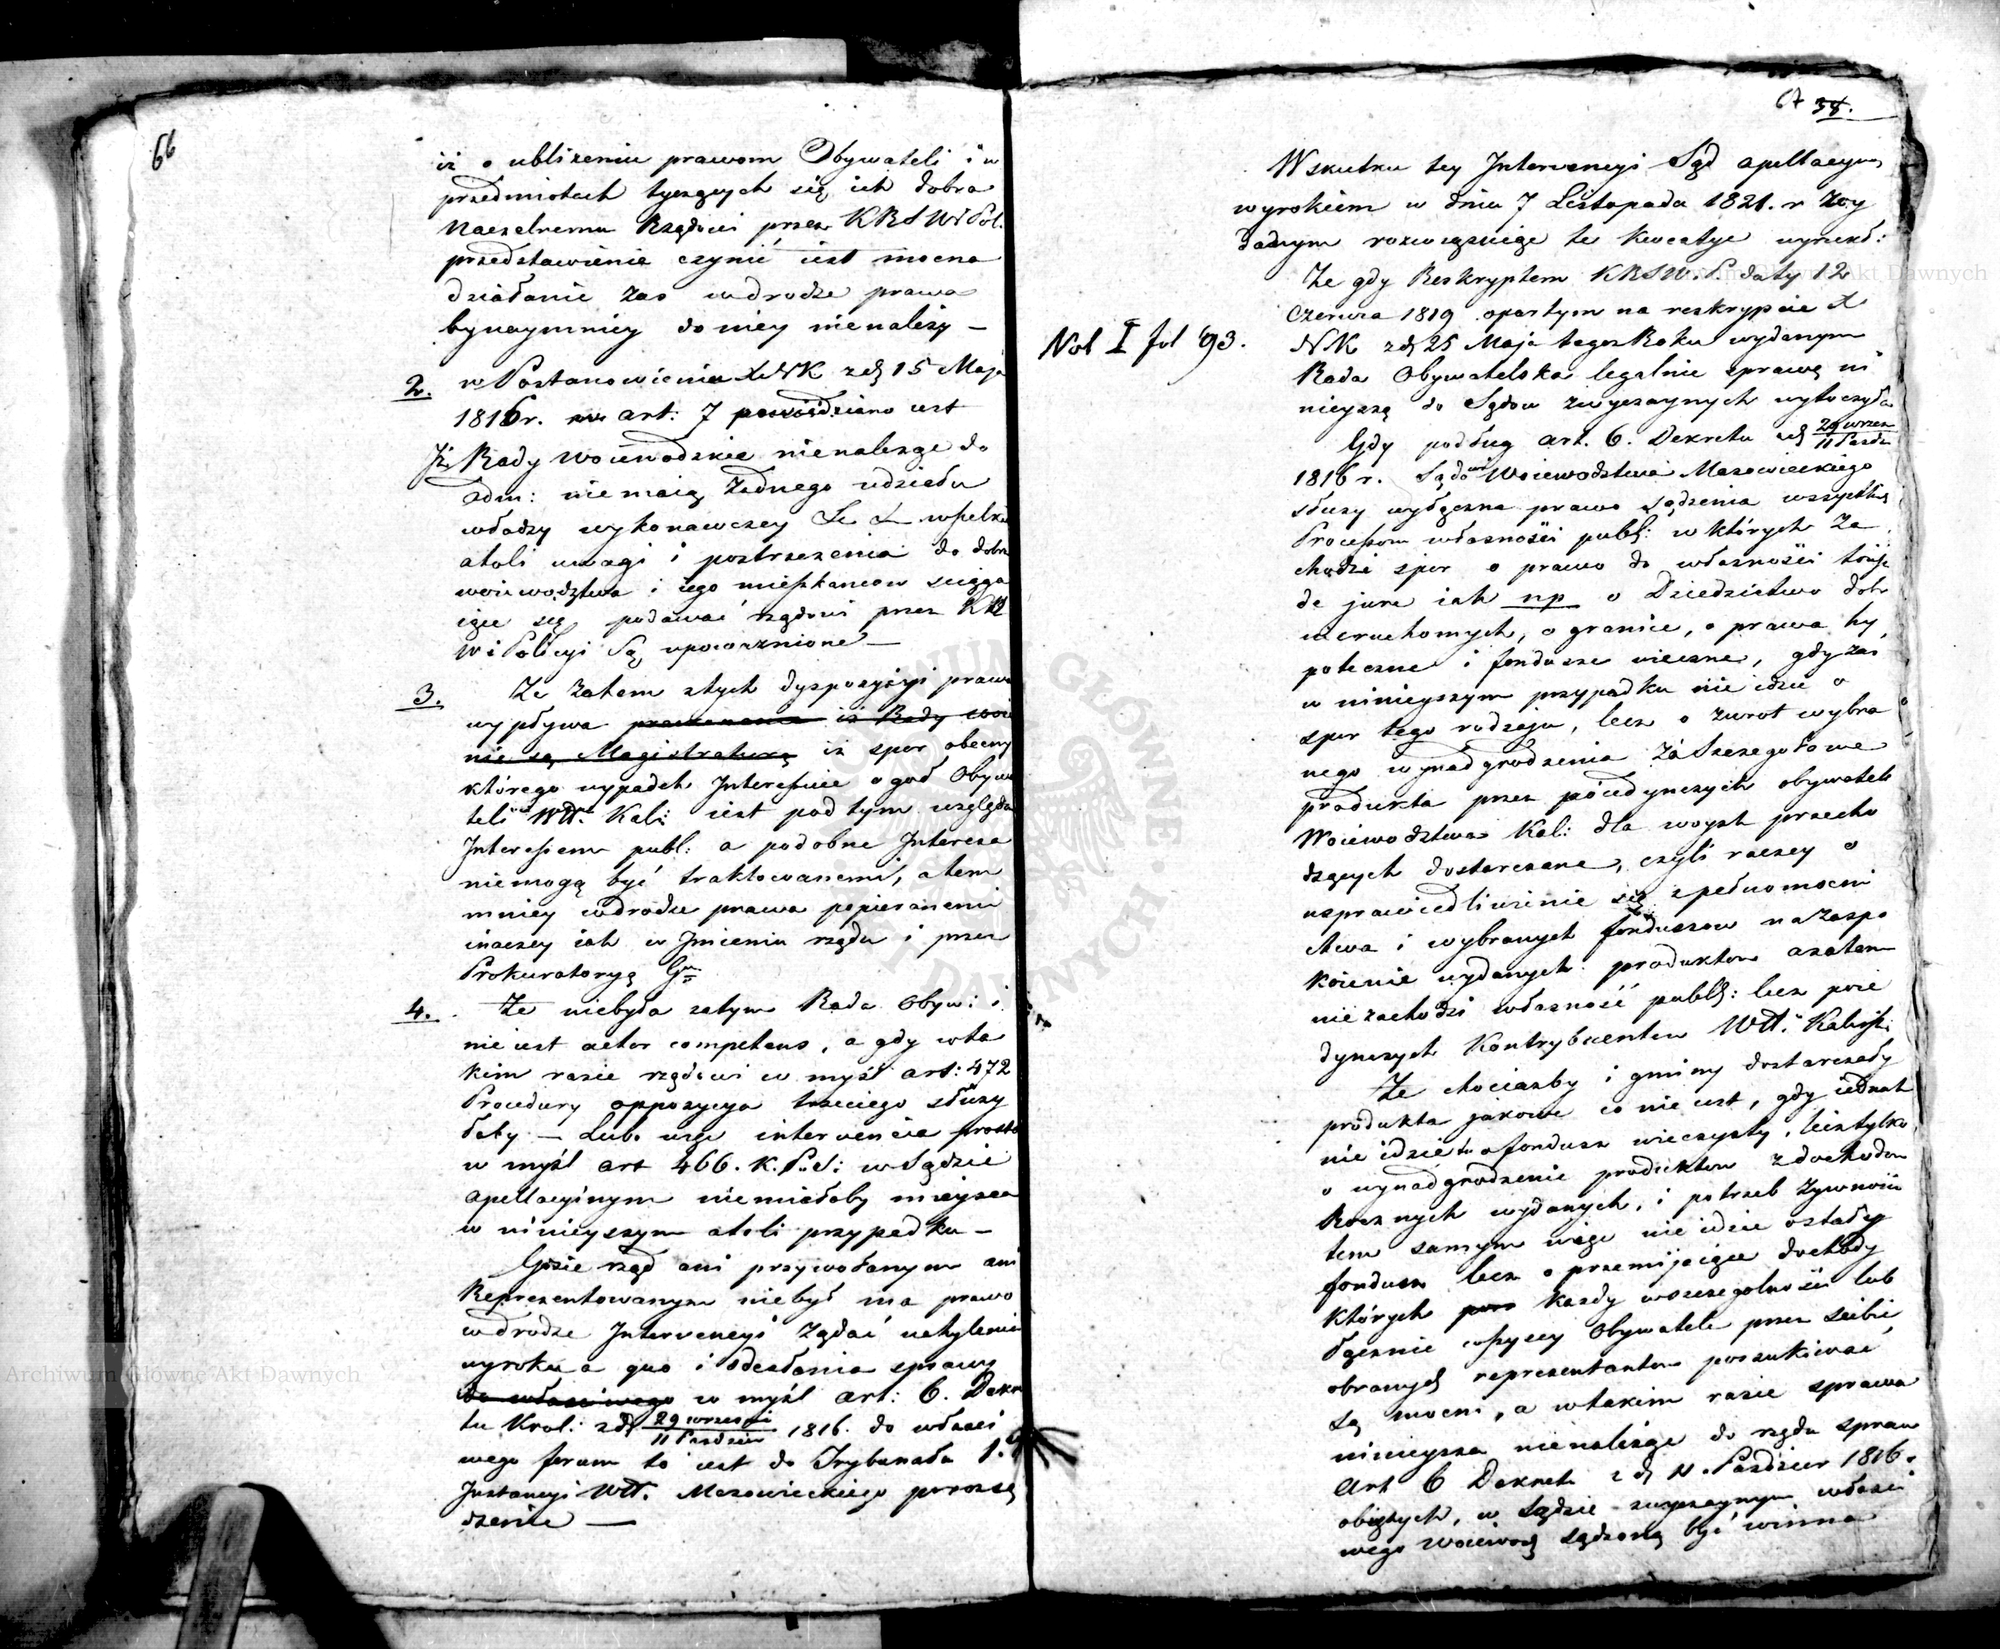 66
iż o ubliżeniu prawom Obywateli i w
przedmiotach tyczących się ich dobra
Naczelnemu Rządowi przez KRSWiPol.
przedstawienie czynić iest mocna
działanie zas w drodze prawa
bynaymniey do niey nienależy —
2. w Postanowieniu XNK z d 15 Maja
1816 r. art: 7 powiedziano iest
Iż Rady Woiewodzkie nienależąc do
Adm: nie maią żadnego udziału
władzy wykonawczey
atoli uwagi i postrzeżenia do dobra
woiewództwa i iego mieszkancow sciąga
iące się podawać rządowi przez KR
W i Policyi Są upowaznione —
3. Że zatem z tych dyspozycyi prawa
wypływa iż Rady woie
nie są Magistraturą iż spor obecny
którego wypadek Interessuie ogół Obywa
teli Wtt. Kali: iest pod tym względem
Interessem publ: a podobne Interesa
niemogą być traktowanemi, a tem
mniey w drodze prawa popieranemi
inaczey iak w Imieniu rządu i przez
Prokuratoryą Gn
4. Że niebyła zatym Rada Obyw: i
nie iest actor competens, a gdy w ta
kim razie rządowi w myśl art: 472
Procedury oppozycya trzeciego służy
łaby — Lubo więc intervencia prosto
w myśl art 466. K.P.S: w Sądzie
apellacyinym niemiałaby mieysca
w ninieyszym atoli przypadku —
Gdzie rząd ani przywołanym ani
Reprezentowanym niebył ma prawo
w drodze Intervencyi żądać uchylenia
wyroku a quo i odesłania sprawy
do właściwego w myśl art: 6. Dekre
tu Krol: z d 29 wrzesni / 11 Pazdzier 1816. do właści
wego forum to iest do Trybunału 1.
Instancyi Wtt. Mazowieckiego
dzenie —
67 34.
W skutku tey Intervencyi Sąd apellacyiny
wyrokiem w dniu 7 Listopada 1821. r
danym rozwiązuiąc te kwestye wyrzekł:
Że gdy Reskryptem KRSW.P. daty 12
Czerwca 1819 opartym na reskrypcie X
NK z d 25 Maja tegoż Roku wydanym
Nol I fol 93.
Rada Obywatelska legalnie sprawę ni
nieyszą do Sądow zwyczaynych wytoczyła
Gdy podług art. 6. Dekretu z d 29 wrzes / 11 Pazdz
1816 r. Sądowi Woiewodztwa Mazowieckiego
służy wyłączne prawo sądzenia wszystkich
Processow własności publ: w których za
chodzi spor o prawo do własności
de jure iak np o Dziedzictwo dobr
nieruchomych, o granice, o prawa hy
poteczne i fondusze wieczne, gdy zas
w ninieyszym przypadku nie idzie o
spor tego rodzaju, lecz o zwrot wybra
nego wynadgrodzenia za szczegołowe
produkta przez poiedynczych obywateli
Woiewodztwa Kal: dla woysk przecho
dzących dostarczane, czyli raczey o
usprawiedliwienie się z pełnomocni
ctwa i wybranych fonduszow na zaspo
koienie wydanych produktow a zatem
niezachodzi własność publ: lecz poie
dynczych Kontrybuentow Wtt. Kalisk:
Że chociażby i gminy dostarczały
produkta jakowe co nie iest, gdy iednak
nie idzie tu o fondusz wieczysty, lecz tylko
o wynadgrodzenie produktow z dochodow
Rocznych wydanych, i potrzeb żywności
tem samym więc nie idzie o stały
fondusz lecz o przemijaiące dochody
których każdy w szczegolności lub
łącznie wszyscy Obywatele przez siebie
obranych reprezentantow poszukiwać
są mocni, a w takim razie sprawa
ninieysza nienależąc do rzędu spraw
Art 6 Dekretu z d 11. Pazdzier 1816.
obiętych, w Sądzie zwyczaynym właści
wego woiewod sądzoną być winna